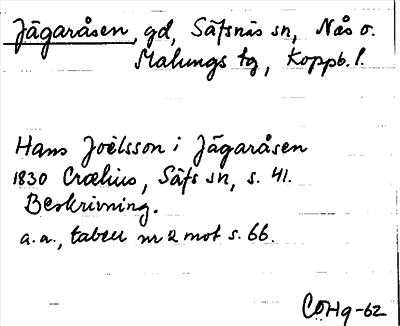 Jägaråsen, gd, Säfsnäs sn, Nås o.
Malungs tg, Koppb. l.
Hans Joëlsson i Jägaråsen
1830 Crælius, Säfs sn, s. 41.
Beskrivning.
a.a., tabell nr 2 mot s. 66.
COHg-62